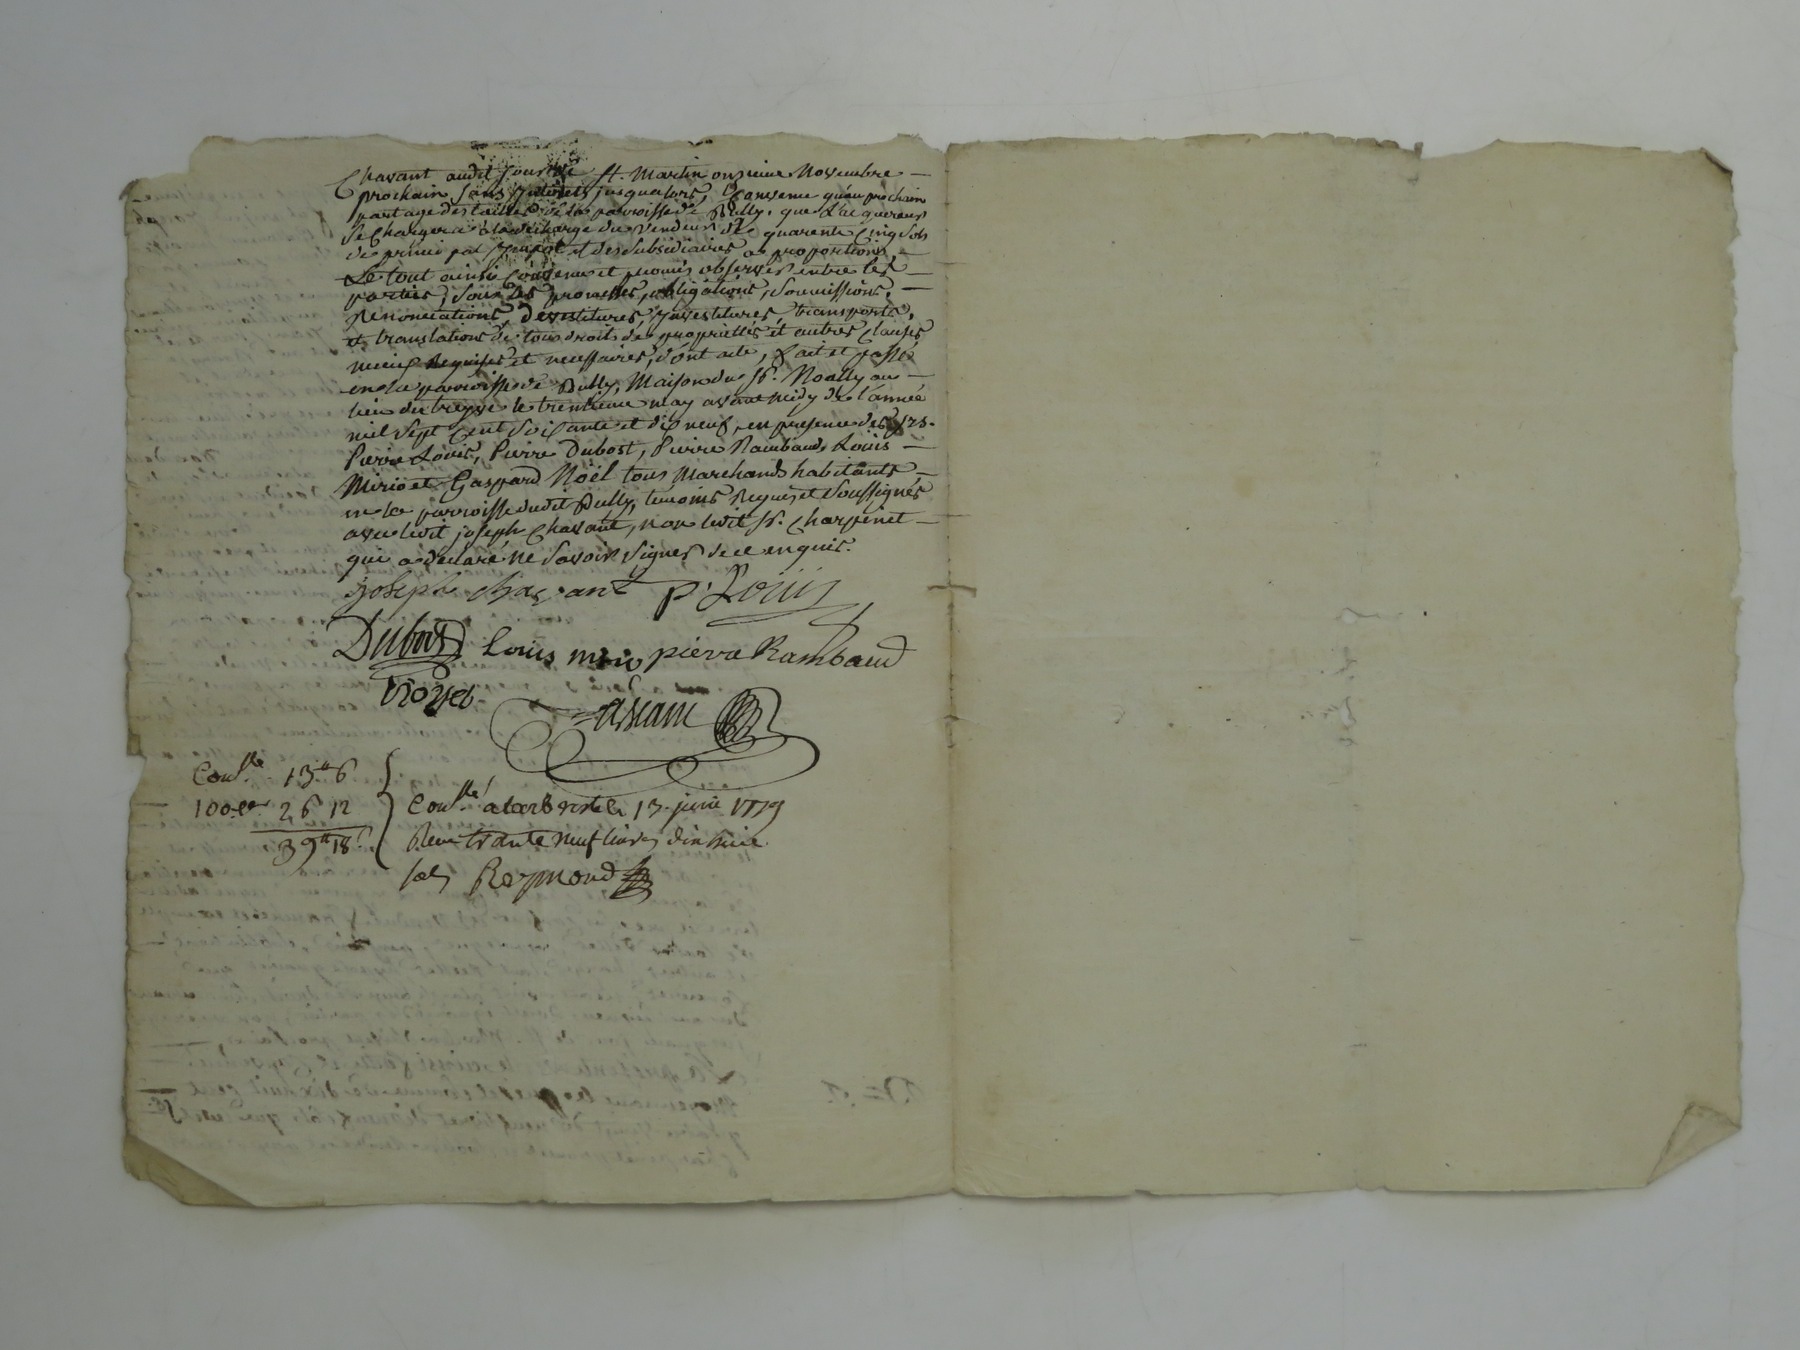 Chavant audit jour de St. Martin onzieme Novembre
prochain sans interets jusqualors, Convenu qu'au prochain
partage des tailles de la parroisse de Bully, que L'acquereur
se Chargera a la decharge du Vendeur de quarente Cinq sols
de princi pal impôt et des subsidiaires a proportion,
Le tout ainsi Convenu et promis observer entre les
parties, sous les promesses, obligations, soumissions,
renonciations, devestitures, investitures, transports,
et translations de tous droits de proprietés et autres Clauses
mieux requises et necessaires, dont acte, fait et passé
en la parroisse de Bully, Maison du Sr. Noally au
lieu du treyve le trentieme may avant midy de l'année
mil sept Cent soixante et dix neuf, en presence des Srs.
Pierre Louis, Pierre Dubost, Pierre Rambaud, Louis
Mirio et Gaspard Noël tous Marchands habitants
en la parroisse dudit Bully, temoins requis et soussignés
avec ledit joseph Chavant, non ledit Sr. Charpinet
qui a declaré ne savoir signer de ce enquis.
joseph chavant P. Loüis
Dubost Louis mirio pierre Rambaud
noyel
Conlle. 13tt 6
100e. 26 12
39tt 18s
Conllé a larbresle le 13 juin 1779
Recu trante neuf livres dix huit
sols Reymond